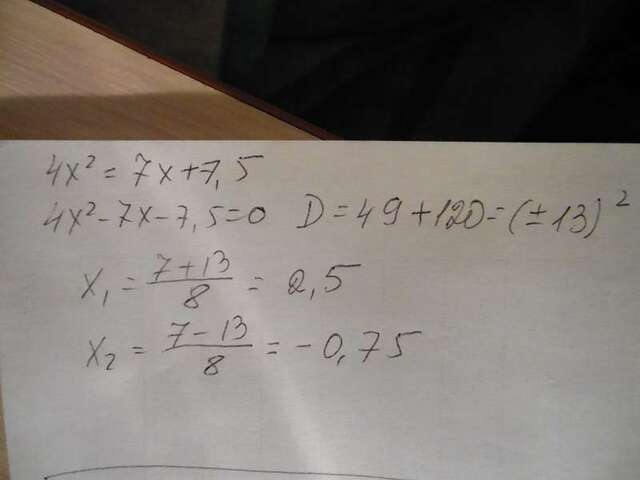 4x² = 7x+7,5
4x²-7x-7,5=0 D=49+120=(±13)²
x₁ = \frac{7+13}{8} = 2,5
x₂ = \frac{7-13}{8} = -0,75